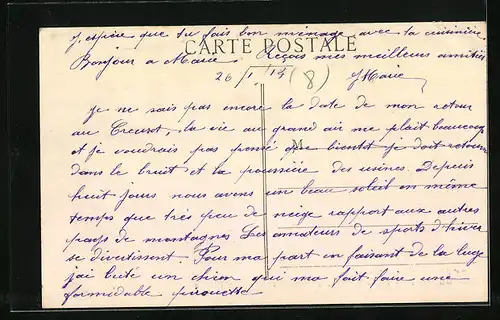 J'espère que tu fais bon ménage avec la cuisinière
CARTE POSTALE
Bonjour a Marie Reçois mes meilleurs amitiés
26/1/14 (8) Marie
je ne sais pas encore la date de mon retour
au Creusot, la vie au grand air me plait beaucoup
et je voudrais pas penser que bientot je dois retourner
dans le bruit et la poussière des usines. Depuis
huit jours nous avons un beau soleil en même
temps que très peu de neige rapport aux autres
pays de montagnes. Les amateurs de sports d'hiver
se divertissent. Pour ma part en faisant de la luge
j'ai buté un chien qui m'a fait faire une
formidable pirouette